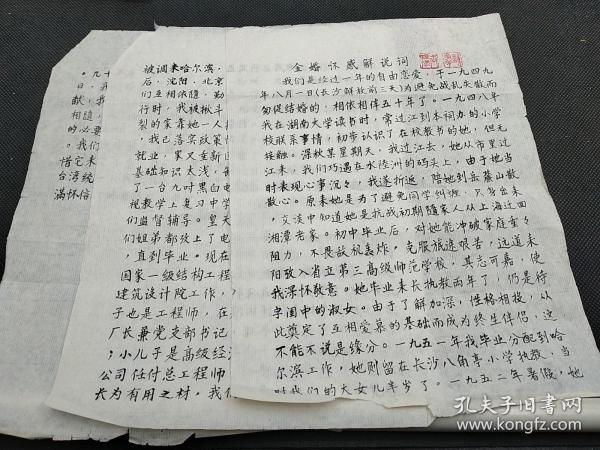 金婚怀感解说词
我们是经过一年的自由恋爱，于一九四九
年八月一日(长沙解放前三天)为避免战乱失散而
匆促结婚的，相依相伴五十年了。一九四八年
我在湖南大学读书时，常过江到未祠办的小学
校联系事情，初步认识了在校教书的她，但无
接触。深秋某星期天，我过江去，她从市里过
江来，我们巧遇在水陸洲的码头上，由于她当
时表现心事沉々，我遂折返，陪她到岳麓山散
散心。原来她是为了避免同学纠缠，只身出来
，交谈中知道她是抗战初期随家人从上海迁回
湘潭老家。初中毕业后，对她能冲破家庭重々
阻力，不畏敌机轰炸，克服旅途艰苦，远道耒
阳改入省立第三高级师范学校，其志可嘉，使
我深怀敬意。她毕业来长执教两年了，仍是待
字闺中的淑女。由于了解加深，性格相投，从
此奠定了互相爱慕的基础而成为终生伴侣，这
不能不说是缘分。一九五一年我毕业分配到哈
尔滨工作，她则留在长沙八角亭小学执教，当
时我们的大女儿半岁了。一九五二年暑假，她
被调来哈尔滨，
后，沈阳、北京
们互相依随，勤
行时，我被揪斗
裂的家靠她一人
，我已落实政策
就业，家又重新团
基础知识太浅，
了一台九吋黑白电
视教学上复习中学
们监督辅导。皇天
们姐弟都考上了电
，直到毕业。现在
国家一级结构工程
建筑设计院工作，
子也是工程师，在
厂长兼党支部书记，
；小儿子是高级经
公司任付总工程师
长为有用之材，我们
。九十
日，再
献，我
相随，
的必要
。我们
惜它来
台湾统
满怀信
孔夫子旧书网